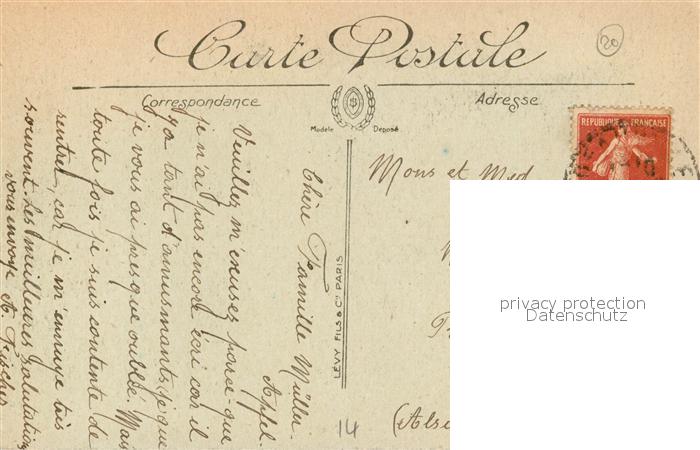 Carte Postale
20
Correspondance
Adresse
Modèle Déposé
REPUBLIQUE FRANÇAISE
Mons et Med
(Alse
LEVY FILS & Cie PARIS
14
Chère Famille Müller-
Apfel.
Veuillez m'exuses parce-que
je n'ai pas encore écri car il
ya tant d'amusmants, je que
je vous ai presque oublié. Mais
toute fois je suis contente de
rentrer, car je m'ennuye tois
souvent. Les meilleures salutations
vous envoye A. Fischer
privacy protection
Datenschutz